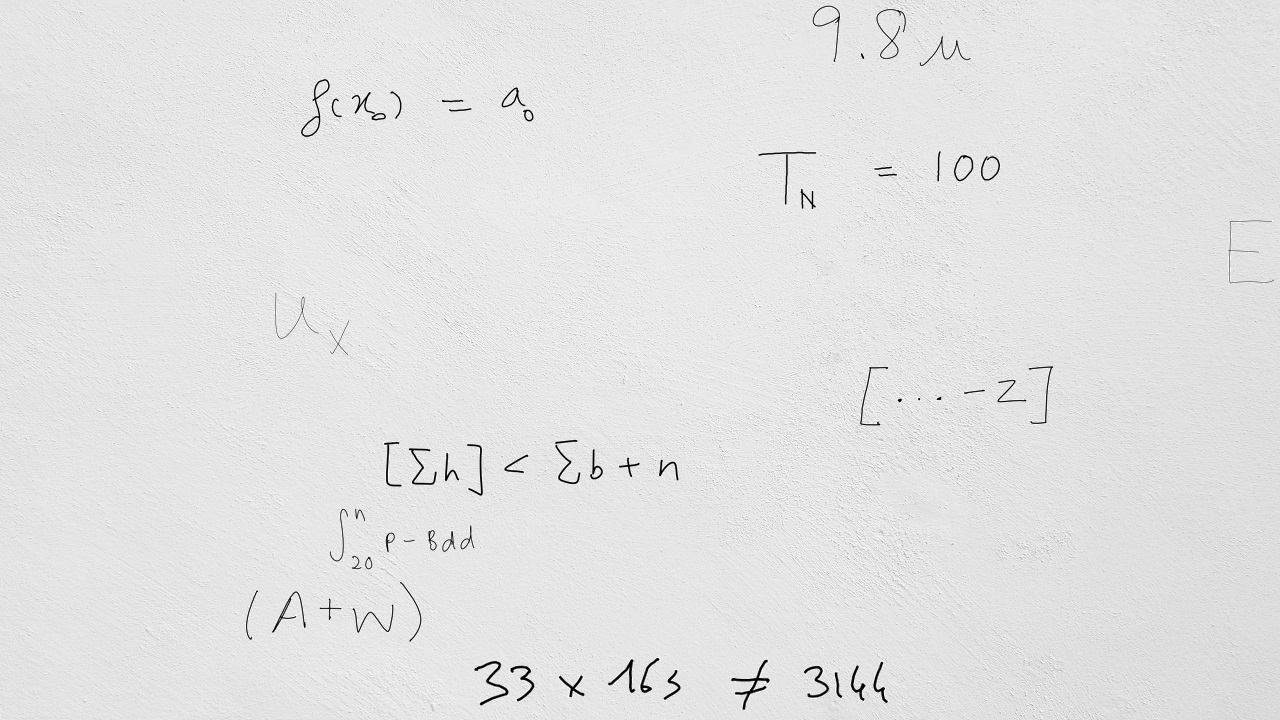 9.8 u
f(x₀) = a₀
T_N = 100
E
u_x
[... - z]
[Σh] < Σb + n
∫₂₀ⁿ P - Bdd
(A + W)
33 x 16s ≠ 3144